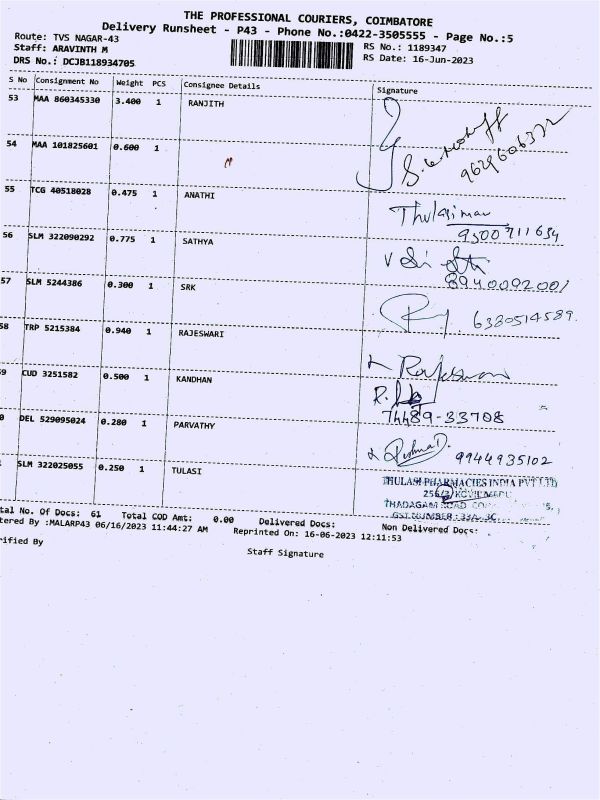 THE PROFESSIONAL COURIERS, COIMBATORE
Delivery Runsheet - P43 - Phone No.:0422-3505555 - Page No.:5
Route: TVS NAGAR-43
RS No.: 1189347
Staff: ARAVINTH M
RS Date: 16-Jun-2023
DRS No.: DCJB118934705
S No Consignment No Weight PCS Consignee Details Signature
53 MAA 860345330 3.400 1 RANJITH
9629606372
54 MAA 101825601 0.600 1
55 TCG 40518028 0.475 1 ANATHI Thulasiman
9500711634
56 SLM 322090292 0.775 1 SATHYA
8940009200/
57 SLM 5244386 0.300 1 SRK 6380514589.
58 TRP 5215384 0.940 1 RAJESWARI Rajeswari
9 CUD 3251582 0.500 1 KANDHAN
74489-33708
0 DEL 529095024 0.280 1 PARVATHY 9944935102
SLM 322025055 0.250 1 TULASI THULASI PHARMACIES INDIA PVT LTD
THADAGAM ROAD
GST NUMBER : 33A
tal No. Of Docs: 61 Total COD Amt: 0.00 Delivered Docs: Non Delivered Docs:
tered By :MALARP43 06/16/2023 11:44:27 AM Reprinted On: 16-06-2023 12:11:53
rified By
Staff Signature